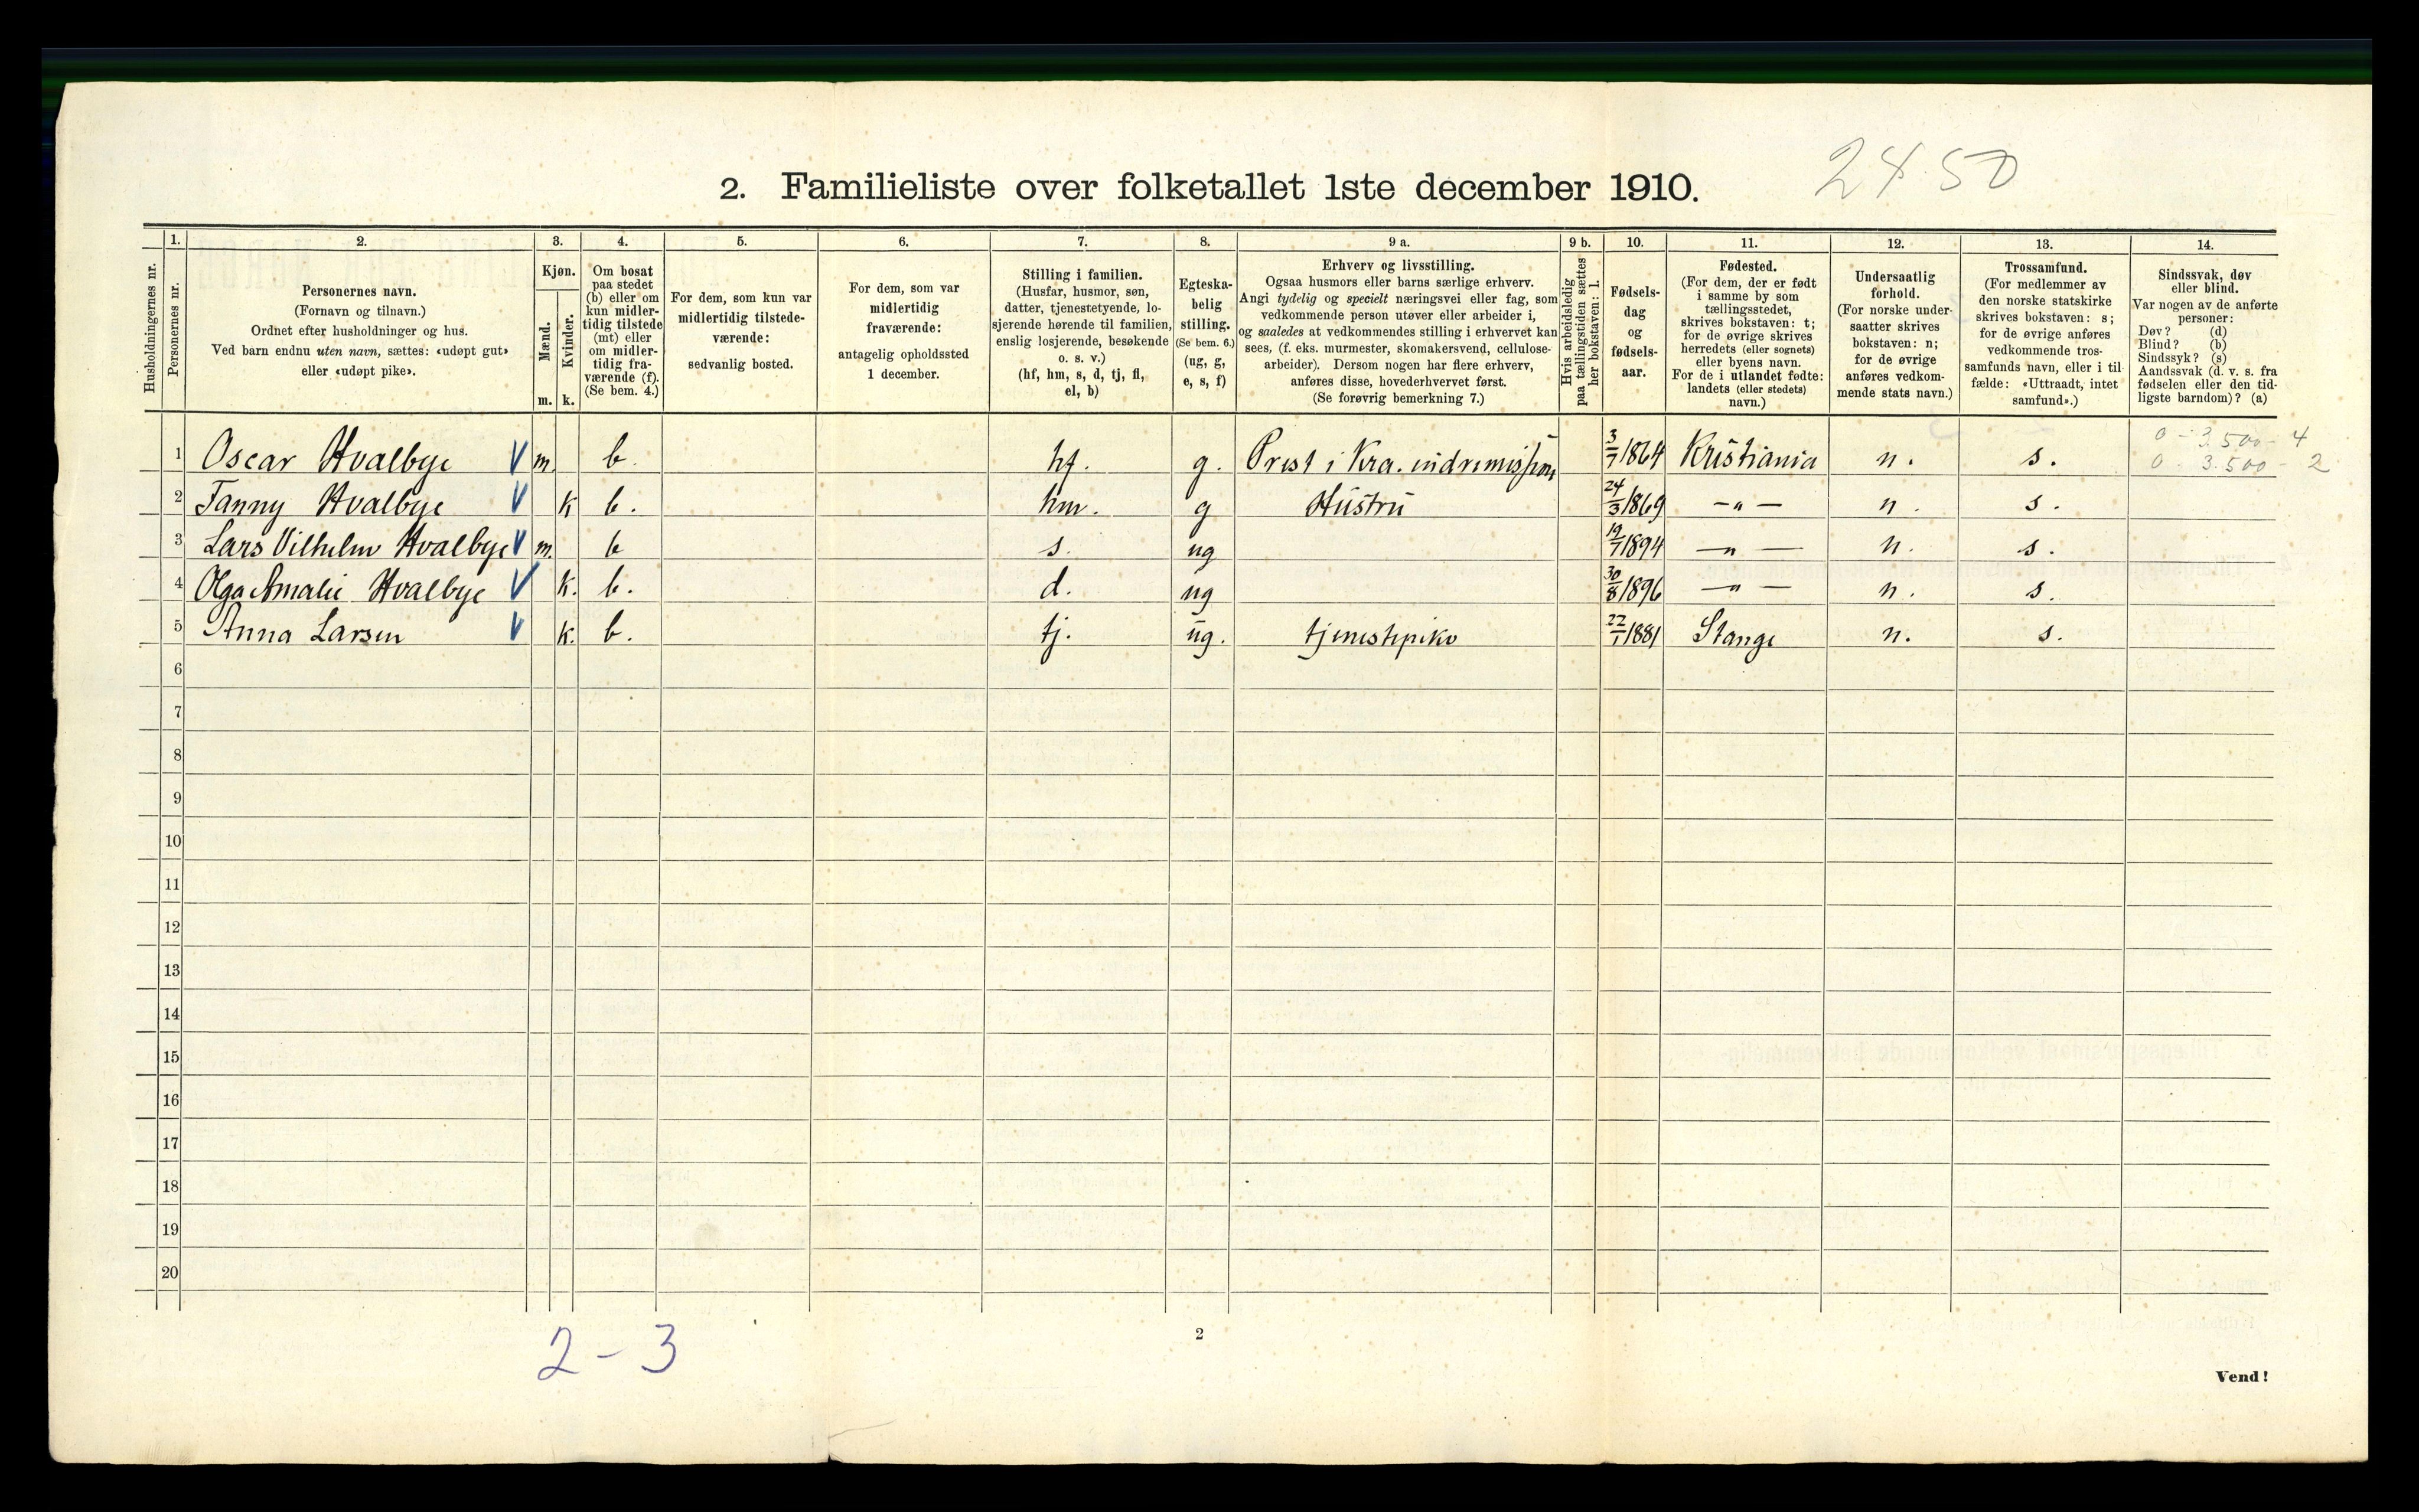 24.50
2. Familieliste over folketallet 1ste december 1910.
Husholdningernes nr.
1.
Personernes nr.
2.
Personernes navn.
(Fornavn og tilnavn.)
Ordnet efter husholdninger og hus.
Ved barn endnu uten navn, sættes: «udøpt gut»
eller «udøpt pike».
3.
Kjøn.
Mænd.
Kvinder.
m. k.
4.
Om bosat
paa stedet
(b) eller om
kun midler-
tidig tilstede
(mt) eller
om midler-
tidig fra-
værende (f).
(Se bem. 4.)
5.
For dem, som kun var
midlertidig tilstede-
værende:
sedvanlig bosted.
6.
For dem, som var
midlertidig
fraværende:
antagelig opholdssted
1 december.
7.
Stilling i familien.
(Husfar, husmor, søn,
datter, tjenestetyende, lo-
sjerende hørende til familien,
enslig losjerende, besøkende
o. s. v.)
(hf, hm, s, d, tj, fl,
el, b)
8.
Egteska-
belig
stilling.
(Se bem. 6.)
(ug, g,
e, s, f)
9 a.
Erhverv og livsstilling.
Ogsaa husmors eller barns særlige erhverv.
Angi tydelig og specielt næringsvei eller fag, som
vedkommende person utøver eller arbeider i,
og saaledes at vedkommendes stilling i erhvervet kan
sees, (f. eks. murmester, skomakersvend, cellulose-
arbeider). Dersom nogen har flere erhverv,
anføres disse, hovederhvervet først.
(Se forøvrig bemerkning 7.)
9 b.
Hvis arbeidsledig
paa tællingstiden sættes
her bokstaven: l.
10.
Fødsels-
dag
og
fødsels-
aar.
11.
Fødested.
(For dem, der er født
i samme by som
tællingsstedet,
skrives bokstaven: t;
for de øvrige skrives
herredets (eller sognets)
eller byens navn.
For de i utlandet fødte:
landets (eller stedets)
navn.)
12.
Undersaatlig
forhold.
(For norske under-
saatter skrives
bokstaven: n;
for de øvrige
anføres vedkom-
mende stats navn.)
13.
Trossamfund.
(For medlemmer av
den norske statskirke
skrives bokstaven: s;
for de øvrige anføres
vedkommende tros-
samfunds navn, eller i til-
fælde: «Uttraadt, intet
samfund».)
14.
Sindssvak, døv
eller blind.
Var nogen av de anførte
personer:
Døv? (d)
Blind? (b)
Sindssyk? (s)
Aandssvak (d. v. s. fra
fødselen eller den tid-
ligste barndom)? (a)
0 - 3.500 - 4
1 Oscar Hvalbye V m. b. hf. g. Prest i Kra. indremission 3/7 1864 Kristiania n. s. 0 - 3.500 - 2
2 Fanny Hvalbye V k b. hm. g Hustru 24/3 1869 — „ — n. s.
3 Lars Vilhelm Hvalbye V m. b s. ug 19/7 1894 — „ — n. s.
4 Olga Amalie Hvalbye V k. b. d. ug 30/8 1896 — „ — n. s.
5 Anna Larsen V k. b. tj. ug. tjenestepike 22/1 1881 Stange n. s.
6
7
8
9
10
11
12
13
14
15
16
17
18
19
20
2 - 3
2
Vend!